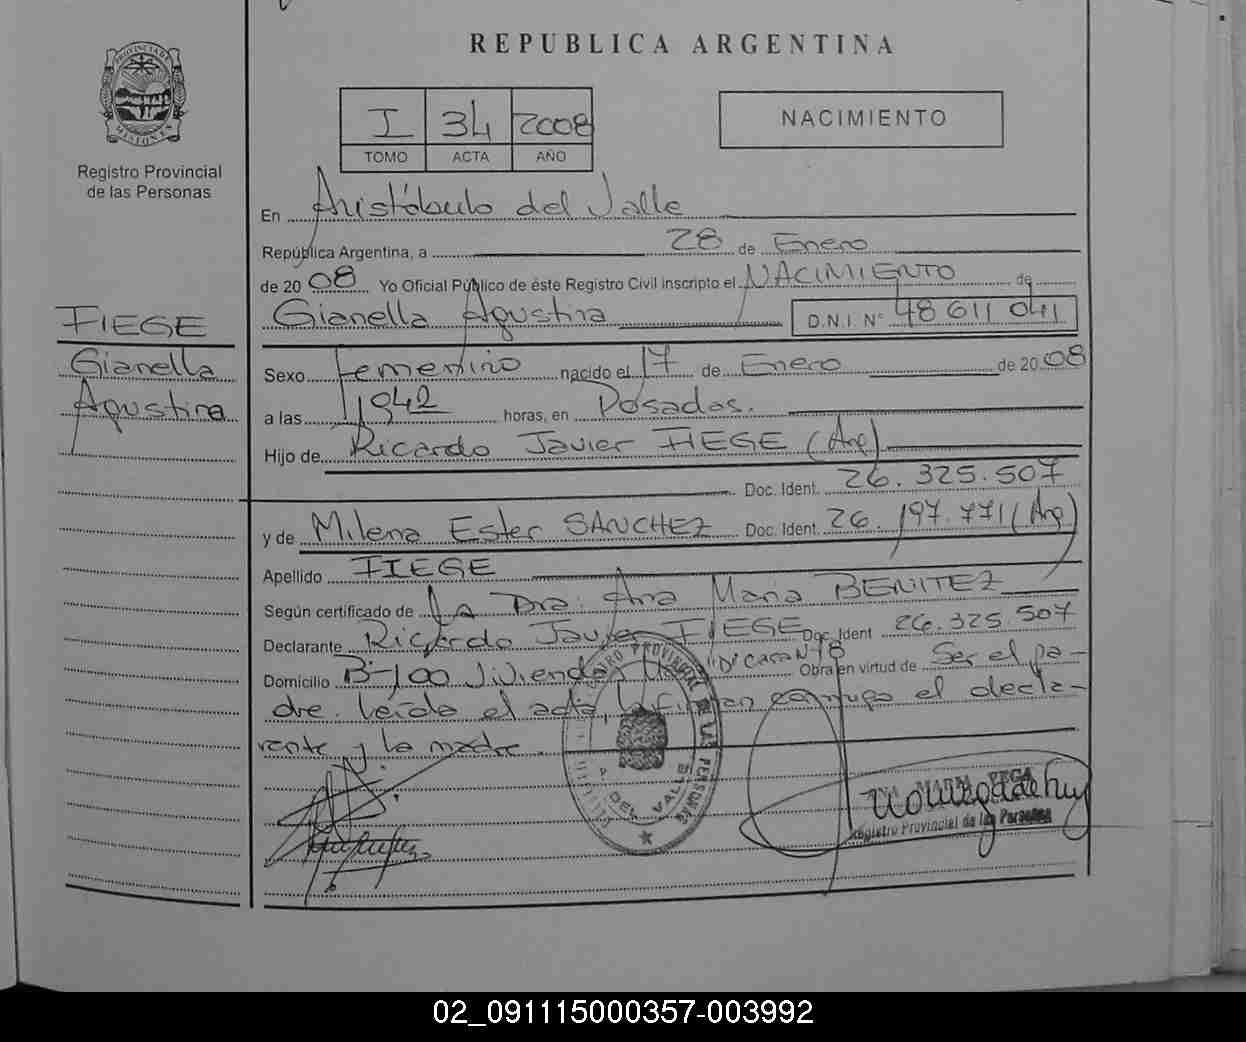 REPUBLICA ARGENTINA
PROVINCIA DE
MISIONES
Registro Provincial
de las Personas
I 34 2008
TOMO ACTA AÑO
NACIMIENTO
En Aristóbulo del Valle
República Argentina, a 28 de Enero
de 2008 Yo Oficial Público de éste Registro Civil inscripto el NACIMIENTO de
Gianella Agustina D.N.I. Nº 48 611 041
FIEGE
Gianella
Agustina
Sexo Femenino nacido el 17 de Enero de 2008
a las 1942 horas, en Posadas.
Hijo de Ricardo Javier FIEGE (Arg)
Doc. Ident. 26.325.507
y de Milena Ester SANCHEZ Doc. Ident. 26.197.771 (Arg)
Apellido FIEGE
Según certificado de La Dra: Ana Maria BENITEZ
Declarante Ricardo Javier FIEGE Doc. Ident 26.325.507
Domicilio Bº 100 Viviendas "D" casa Nº 8 Obra en virtud de Ser el pa-
dre. leída el acta, la firman conmigo el decla-
rante y la madre.
REGISTRO PROVINCIAL DE LAS PERSONAS
DEL VALLE
VEGA
Registro Provincial de las Personas
02_091115000357-003992